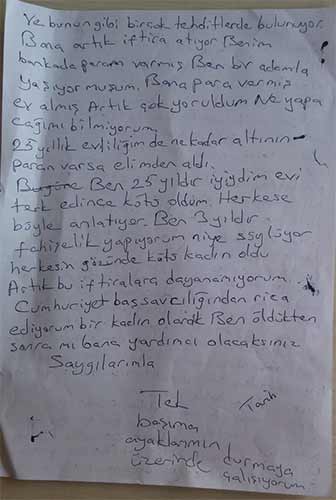 Ve bunun gibi birçok tehditlerde bulunuyor.
Bana artık iftira atıyor Benim
bankada param varmış Ben bir adamla
yaşıyor muşum. Bana para vermiş
ev almış Artık çok yoruldum Ne yapa
cağımı bilmiyorum.
25 yıllık evliliğim de nekadar altının-
paran varsa elimden aldı.
Ben 25 yıldır iyiydim evi
terk edince kötü oldum. Herkese
böyle anlatıyor. Ben 3 yıldır
fahişelik yapıyorum niye söylüyor
herkesin gözünde kötü kadın oldu
Artık bu iftiralara dayanamıyorum.
Cumhuriyet başsavcılığından rica
ediyorum bir kadın olarak Ben öldükten
sonra mı bana yardımcı olacaksınız
Saygılarımla
Tek Tarih
başıma
ayaklarımın
üzerinde durmaya
çalışıyorum